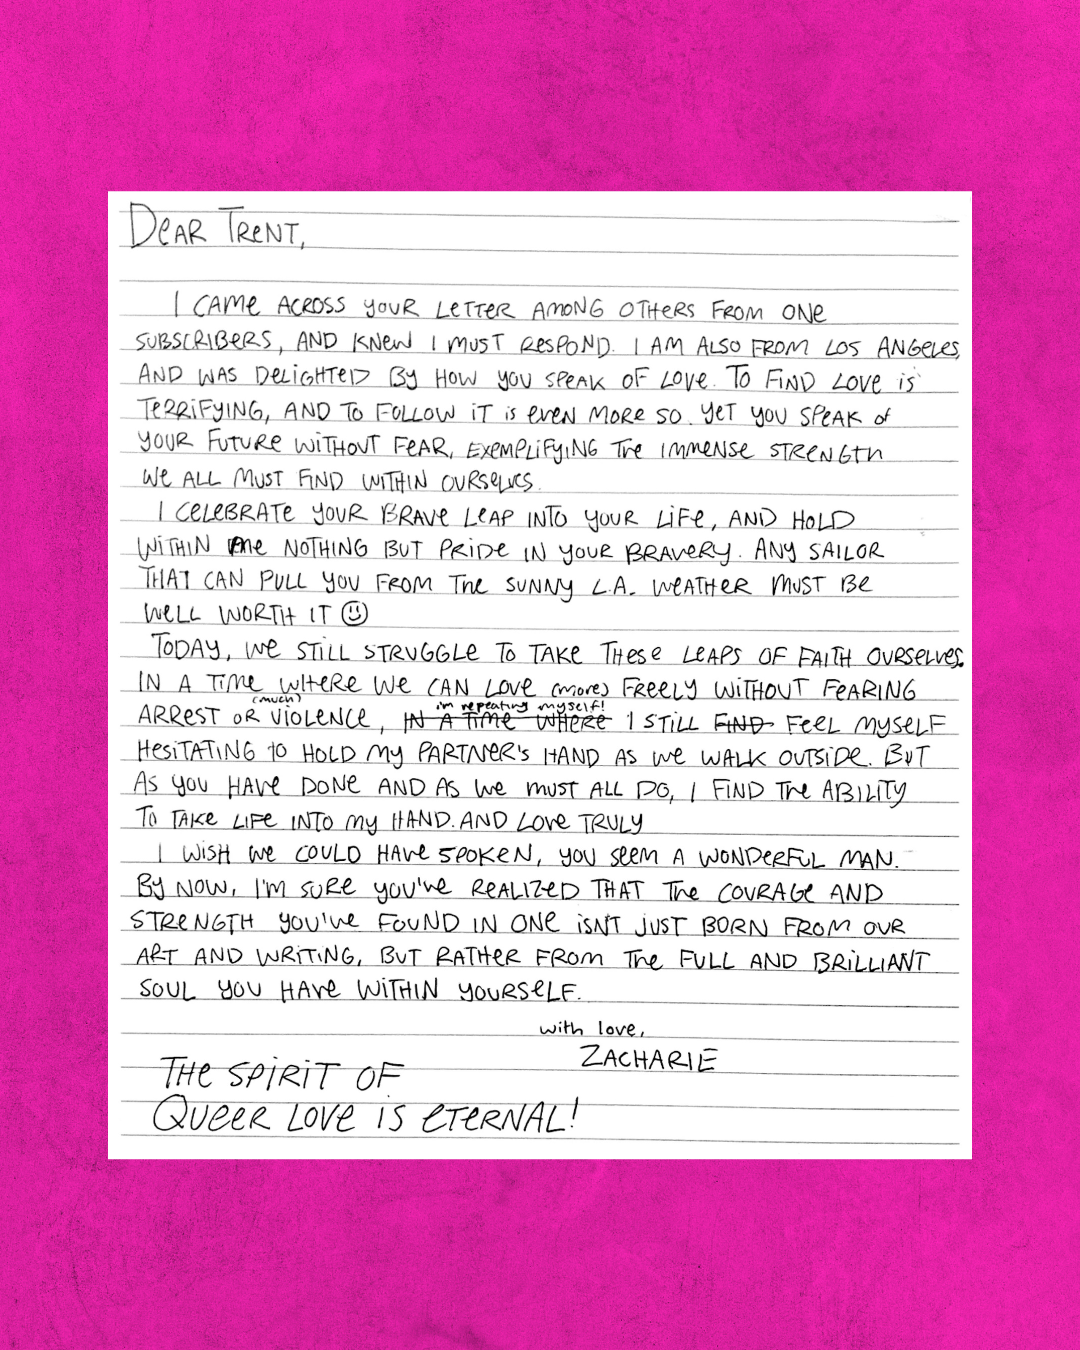 DEAR TRENT,
I CAME ACROSS YOUR LETTER AMONG OTHERS FROM ONE
SUBSCRIBERS, AND KNEW I MUST RESPOND. I AM ALSO FROM LOS ANGELES,
AND WAS DELIGHTED BY HOW YOU SPEAK OF LOVE. TO FIND LOVE IS
TERRIFYING, AND TO FOLLOW IT IS EVEN MORE SO. YET YOU SPEAK OF
YOUR FUTURE WITHOUT FEAR, EXEMPLIFYING THE IMMENSE STRENGTH
WE ALL MUST FIND WITHIN OURSELVES.
I CELEBRATE YOUR BRAVE LEAP INTO YOUR LIFE, AND HOLD
WITHIN ME NOTHING BUT PRIDE IN YOUR BRAVERY. ANY SAILOR
THAT CAN PULL YOU FROM THE SUNNY L.A. WEATHER MUST BE
WELL WORTH IT ☺
TODAY, WE STILL STRUGGLE TO TAKE THESE LEAPS OF FAITH OURSELVES.
IN A TIME WHERE WE CAN LOVE (MORE) FREELY WITHOUT FEARING
(much) i'm repeating myself!
ARREST OR VIOLENCE, IN A TIME WHERE I STILL FIND FEEL MYSELF
HESITATING TO HOLD MY PARTNER'S HAND AS WE WALK OUTSIDE. BUT
AS YOU HAVE DONE AND AS WE MUST ALL DO, I FIND THE ABILITY
TO TAKE LIFE INTO MY HAND. AND LOVE TRULY
I WISH WE COULD HAVE SPOKEN, YOU SEEM A WONDERFUL MAN.
BY NOW, I'M SURE YOU'VE REALIZED THAT THE COURAGE AND
STRENGTH YOU'VE FOUND IN ONE ISN'T JUST BORN FROM OUR
ART AND WRITING, BUT RATHER FROM THE FULL AND BRILLIANT
SOUL YOU HAVE WITHIN YOURSELF.
with love,
ZACHARIE
THE SPIRIT OF
QUEER LOVE IS ETERNAL!